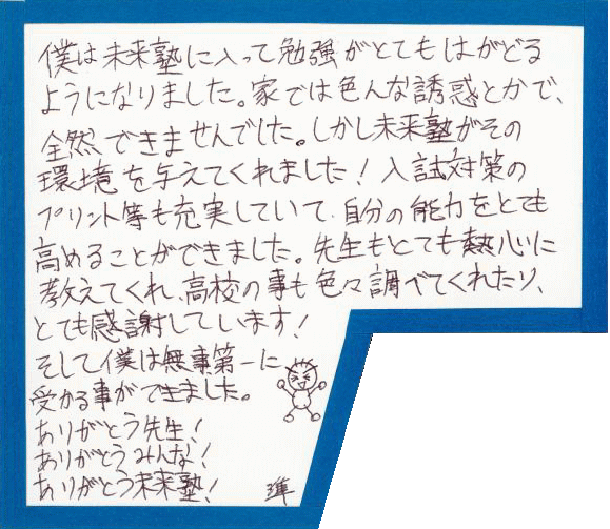 僕は未来塾に入って勉強がとてもはかどる
ようになりました。家では色んな誘惑とかで、
全然できませんでした。しかし未来塾がその
環境を与えてくれました！入試対策の
プリント等も充実していて、自分の能力をとても
高めることができました。先生もとても熱心に
教えてくれ、高校の事も色々調べてくれたり、
とても感謝しています！
そして僕は無事第一に
受かる事ができました。
ありがとう先生！
ありがとうみんな！
ありがとう未来塾！ 準